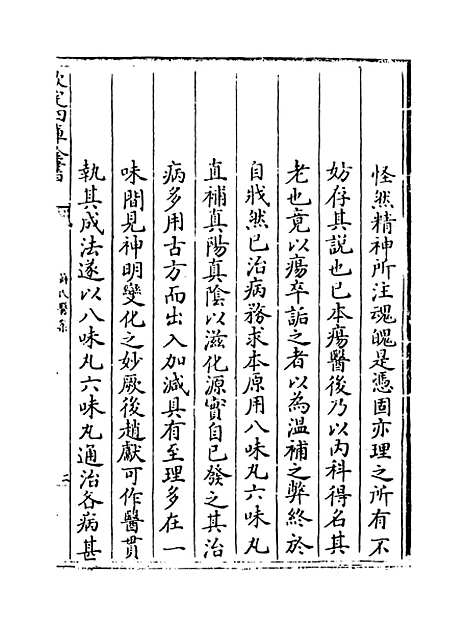 怪然精神所注魂魄是憑固亦理之所有不
妨存其説也已本瘍醫後乃以内科得名其
老也竟以瘍卒詬之者以為温補之弊終於
自戕然已治病務求本原用八味丸六味丸
直補真陽真隂以滋化源實自已發之其治
病多用古方而出入加減具有至理多在一
味間見神明變化之妙厥後趙獻可作醫貫
執其成法遂以八味丸六味丸通治各病甚
欽定四庫全書
薛氏醫案
二